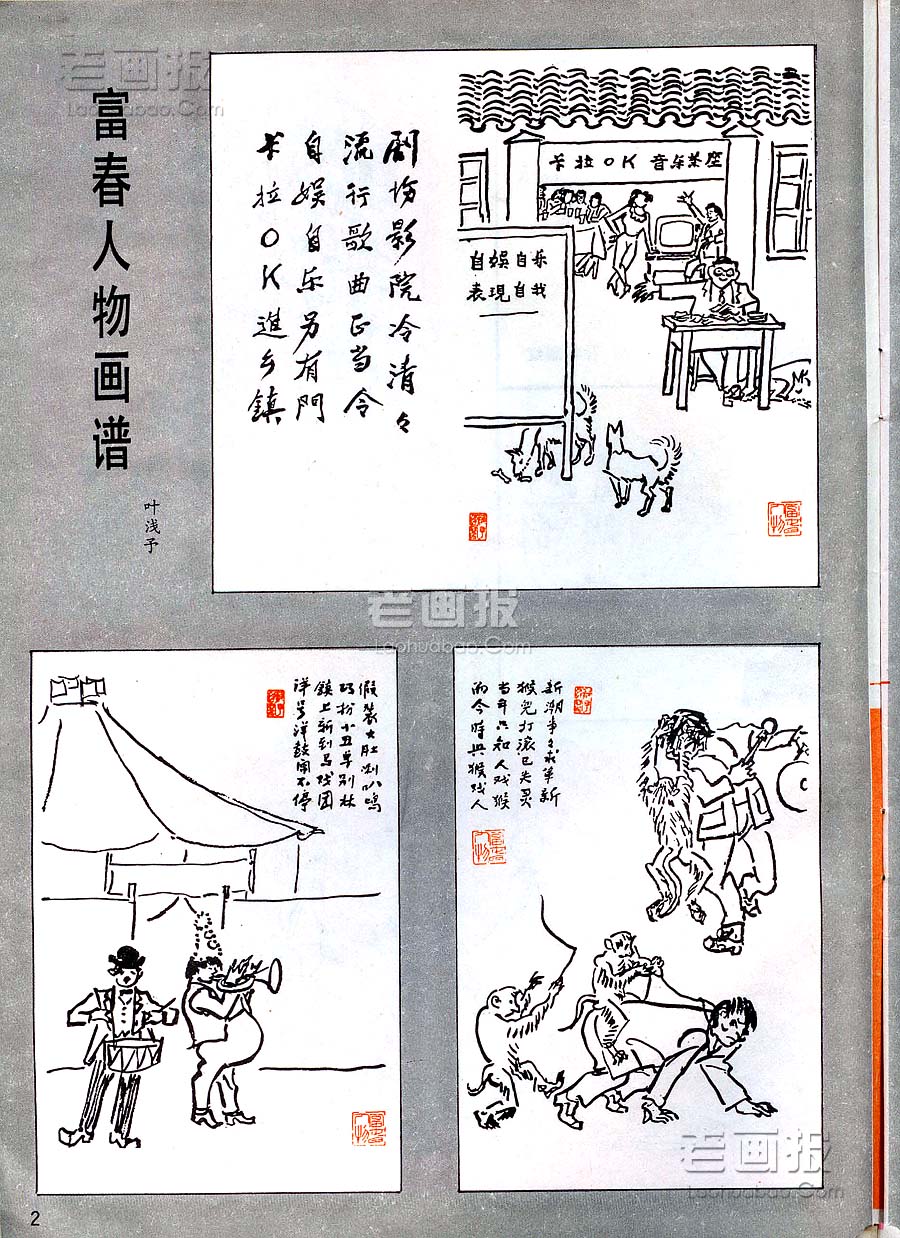 老画报
Laohuabao.Com
富春人物画谱
叶浅予
剧场影院冷清々
流行歌曲正当令
自娱自乐另有門
卡拉OK進乡鎮
卡拉OK 音乐茶座
自娱自乐
表現自我
老画报
Laohuabao.Com
假装大肚喇叭鸣
巧扮小丑卓别林
鎮上新到马戏团
洋号洋鼓闹不停
新潮事々求革新
猴儿打滚已失灵
当年只知人戏猴
而今時興猴戏人
老画报
Laohuabao.Com
2